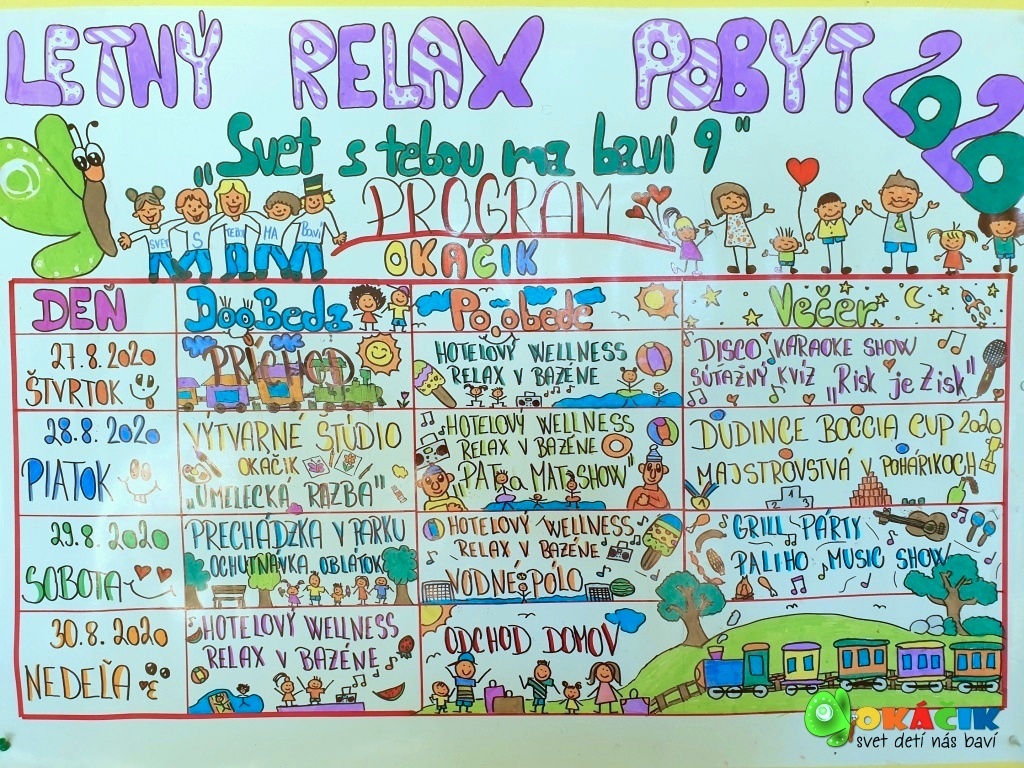 LETNÝ RELAX POBYT 2020
„Svet s tebou ma baví 9"
SVET S TEBOU MA Baví
PROGRAM
OKÁČIK
DEŇ DooBeda Po obede Večer
27.8.2020
ŠTVRTOK
PRÍCHOD
HOTELOVÝ WELLNESS
RELAX V BAZÉNE
DISCO KARAOKE SHOW
SÚŤAŽNÝ KVÍZ „Risk je Zisk"
28.8.2020
PIATOK
VÝTVARNÉ ŠTÚDIO
OKÁČIK
„UMELECKÁ RAZBA"
HOTELOVÝ WELLNESS
RELAX V BAZÉNE
„PAT a MAT SHOW"
DUDINCE BOCCIA CUP 2020
MAJSTROVSTVÁ V POHÁRIKOCH
2 1 3
29.8.2020
SOBOTA
PRECHÁDZKA V PARKU
OCHUTNÁVKA OBLÁTOK
HOTELOVÝ WELLNESS
RELAX V BAZÉNE
VODNÉ PÓLO
GRILL PÁRTY
PALIHO MUSIC SHOW
30.8.2020
NEDEĽA
HOTELOVÝ WELLNESS
RELAX V BAZÉNE
ODCHOD DOMOV
OKÁČIK
svet detí nás baví